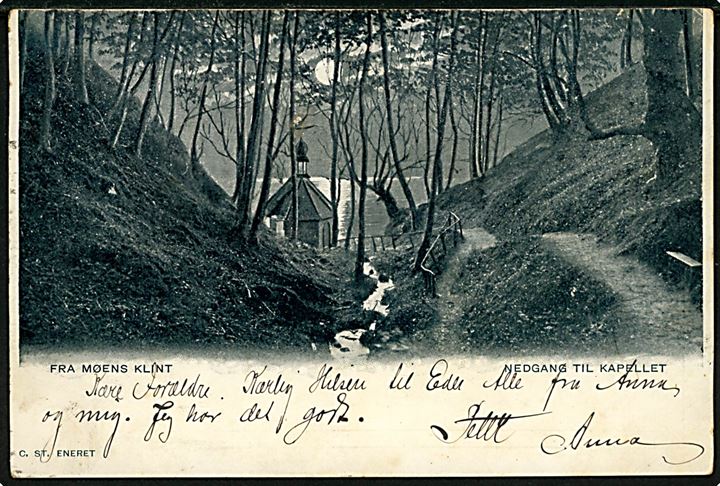 FRA MØENS KLINT
NEDGANG TIL KAPELLET
Kære Forældre. Kærlig Hilsen til Eder Alle fra Anna,
og mig. Jeg har det godt.
Anna
C. ST. ENERET